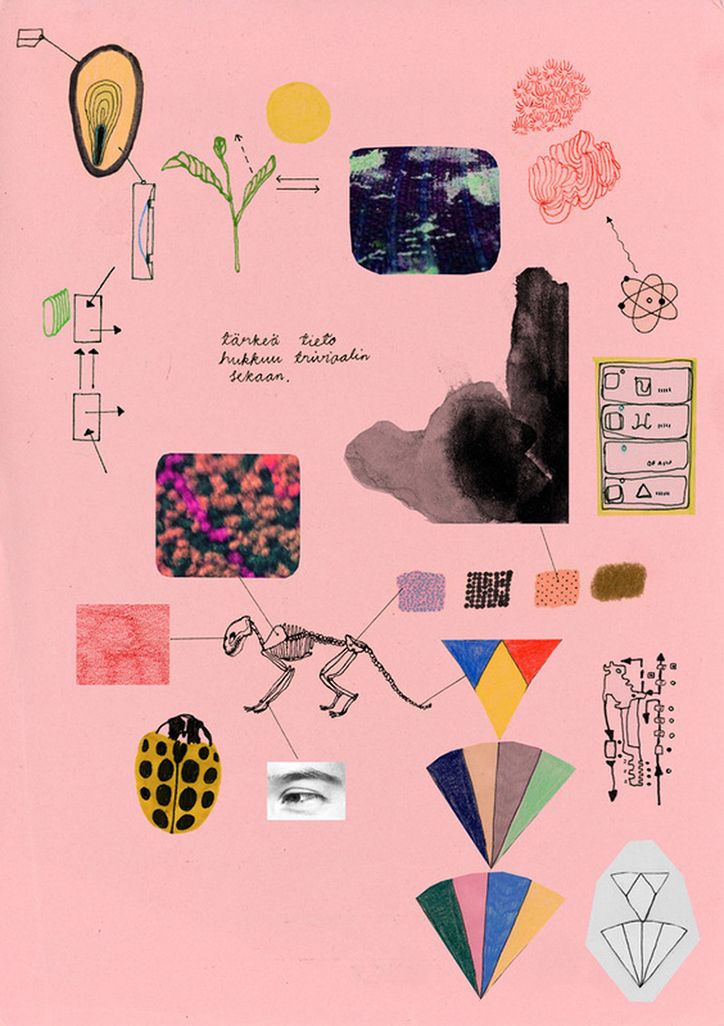 tärkeä tieto
hukkuu triviaalin
sekaan.